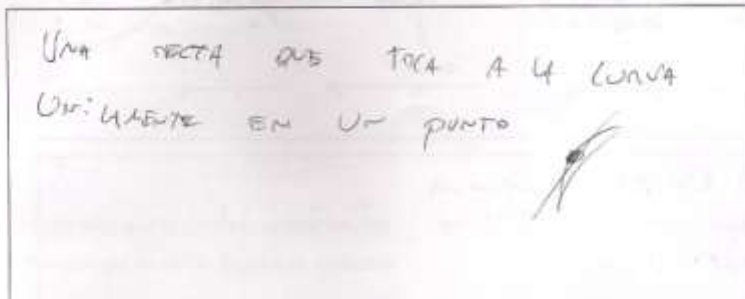 UNA RECTA QUE TOCA A LA CURVA
UNICAMENTE EN UN PUNTO